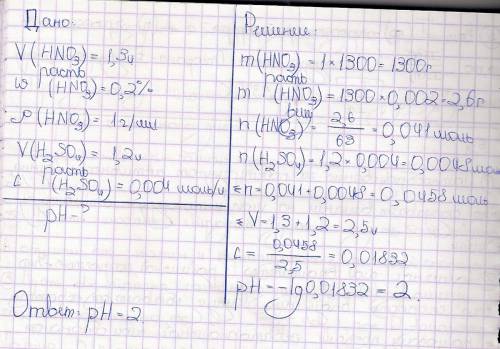 Дано:
V(HNO₃) = 1,3л
раств
ω (HNO₃) = 0,2%
ρ(HNO₃) = 1г/мл
V(H₂SO₄) = 1,2л
раств
c (H₂SO₄) = 0,004 моль/л
pH-?
Ответ: pH = 2
Решение:
m(HNO₃) = 1×1300 = 1300г
раств
m (HNO₃) = 1300×0,002 = 2,6г
n(HNO₃) = 2,6/63 = 0,041 моль
n(H₂SO₄) = 1,2×0,004 = 0,0048 моль
n = 0,041 + 0,0048 = 0,0458 моль
V = 1,3 + 1,2 = 2,5л
c = 0,0458/2,5 = 0,01832
pH = -lg0,01832 = 2.